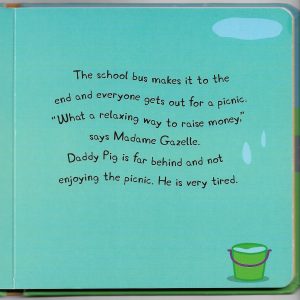 The school bus makes it to the
end and everyone gets out for a picnic.
"What a relaxing way to raise money,"
says Madame Gazelle.
Daddy Pig is far behind and not
enjoying the picnic. He is very tired.